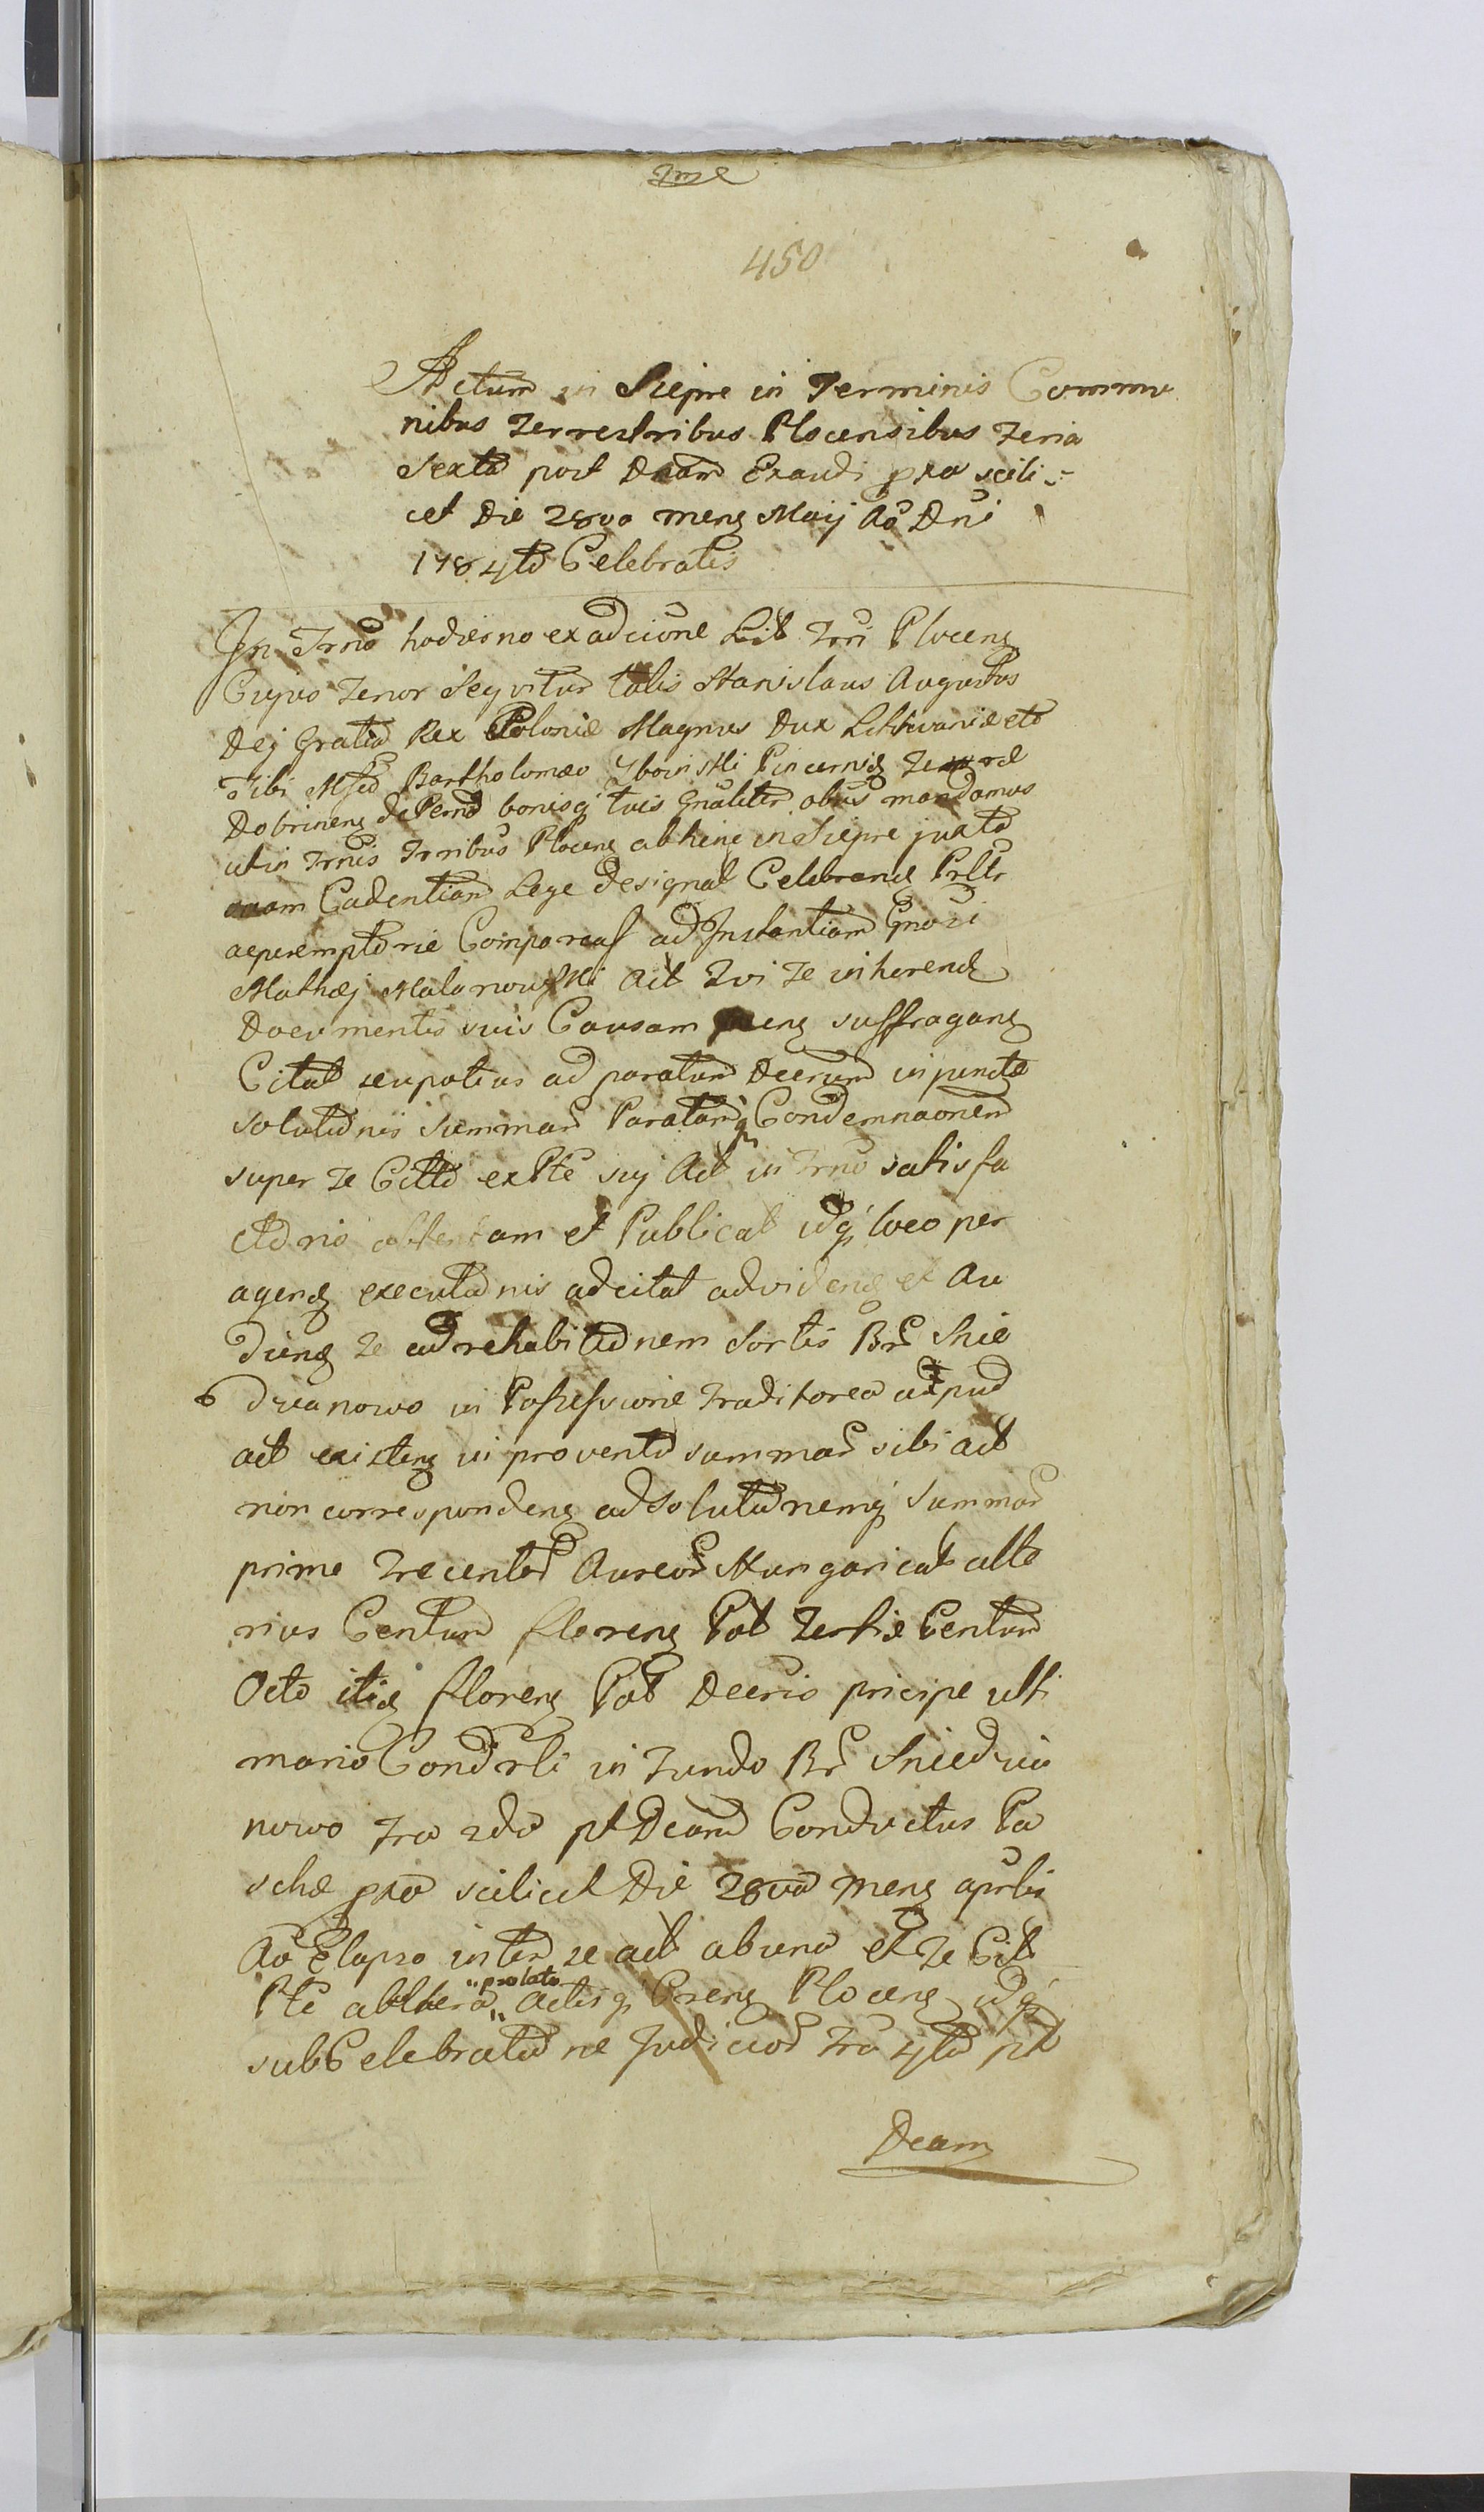 450
Actum in Siepre in Terminis Commu
nibus Terrestribus Plocensibus Feria
Sexta post Dnam Exaudi pxa scili=
cet Die 28va mens Maij Ao Dni
1784to Celebratis
In Trno hodierno ex adcione Lit Trri Plocens
Cujus Tenor Sequitur talis Stanislaus Augustus
Dej Gratia Rex Poloniæ Magnus Dux Lithvaniæ etc
Tibi Msco Bartholomæo Pincernæ
Dobrinens de Persona bonisq tuis Gnaliter obus mandamus
ut in Trnis Trribus Plocens abhinc in Siepre juxta
suam Cadentiam Lege designat Celebrand Prltr
ac peremptorie Compareas ad Instantiam Gnosi
Mathæj Malanowski Act Tui Te inherend
Documentis suis Causam suffragans
Citat seu potius ad paratum Decrum in puncto
solutionis summar Paratamq Condemnaonem
super Te Citto ex Pte suj Act in Trno satisfa
ctorio obtentam et Publicat idq loco per
agend executionis adcitat ad vidend et Au
diend Te ad rehabitionem Sortis Br Snie
dzanowo in Possessione Traditorea ad pnd
act existens in proventu summar sibi act
non correspondens ad solutionemq Summar
prima Trecentor Aureor Hungarical alte
rius Centum florens Pol Tertiæ Centum
Octo itid florens Pol Decrio pricipe ulti
mario Condrli in Fundo Br Sniedza
nowo Fra 2da pt Dcam Conductus Pa
schæ pxa scilicet Die 28va mens aprlis
Ao Elapso inter se act ab una et Te Cit
Pte ab altera "prolato" Actisq Crens Plocens idq
sub Celebratione Judicior Fra 4ta pt
Dcam